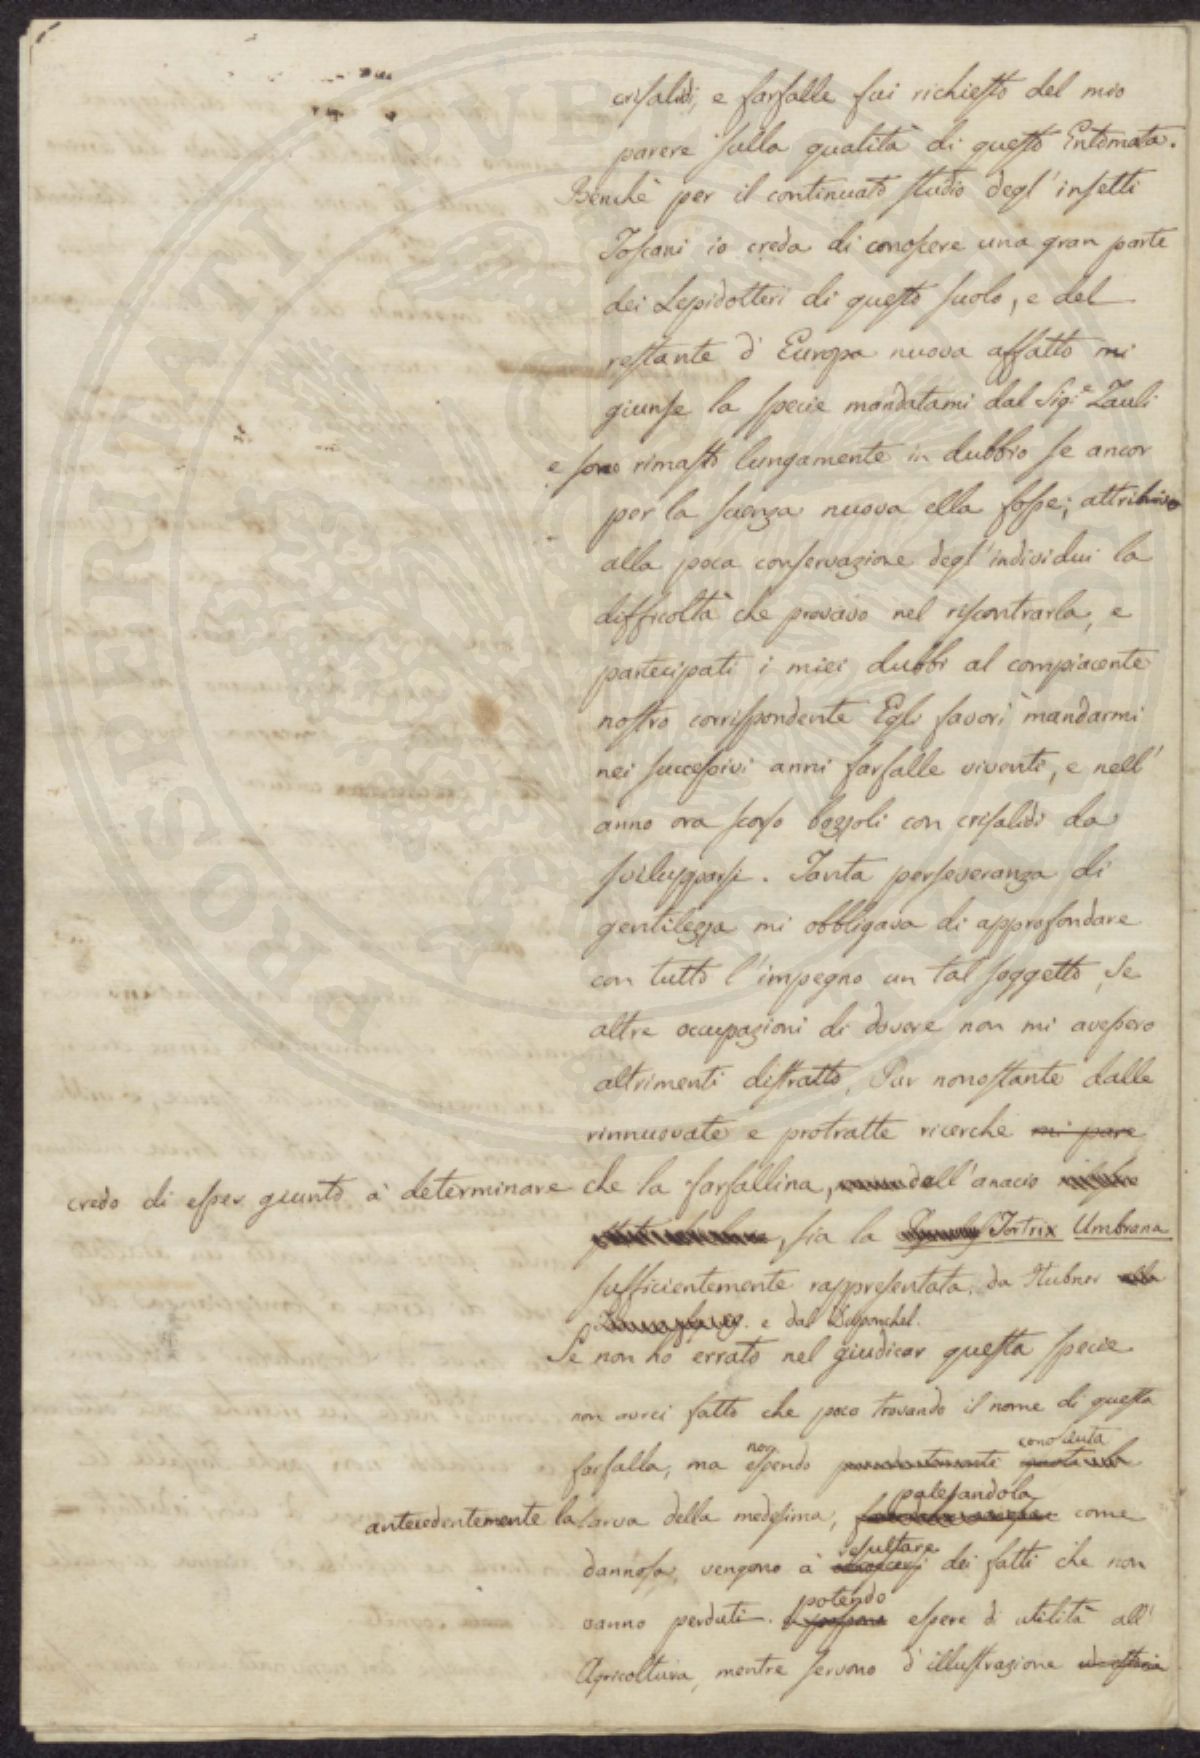 crisalidi, e farfalle fui richiesto del mio
parere sulla qualità di questo Entomata.
Benchè per il continuato studio degl' insetti
Toscani io creda di conoscere una gran parte
dei Lepidotteri di questo suolo, e del
restante d' Europa nuova affatto mi
giunse la specie mandatami dal Sig.e Zauli
e sono rimasto lungamente in dubbio se ancor
per la scienza nuova ella fosse; attribuivo
alla poca conservazione degl' individui la
difficoltà che provavo nel riscontrarla, e
partecipati i miei dubbi al compiacente
nostro corrispondente Egli favorì mandarmi
nei successivi anni farfalle viventi, e nell'
anno ora scorso bozzoli con crisalidi da
svilupparsi. Tanta perseveranza di
gentilezza mi obbligava di approfondare
con tutto l' impegno un tal soggetto, se
altre occupazioni di dovere non mi avessero
altrimenti distratto. Pur nonostante dalle
rinnuovate e protratte ricerche mi pare
credo di esser giunto à determinare che la farfallina, dell' anacio
, sia la Tortrix Umbrana
sufficientemente rappresentata da Hubner
e dal Duponchel.
Se non ho errato nel giudicar questa specie
non avrei fatto che poco trovando il nome di questa
farfalla, ma non essendo conosciuta
antecedentemente la larva della medesima, palesandola come
dannosa, vengono à resultare dei fatti che non
vanno perduti. potendo essere di utilità all'
Agricoltura, mentre servono d' illustrazione